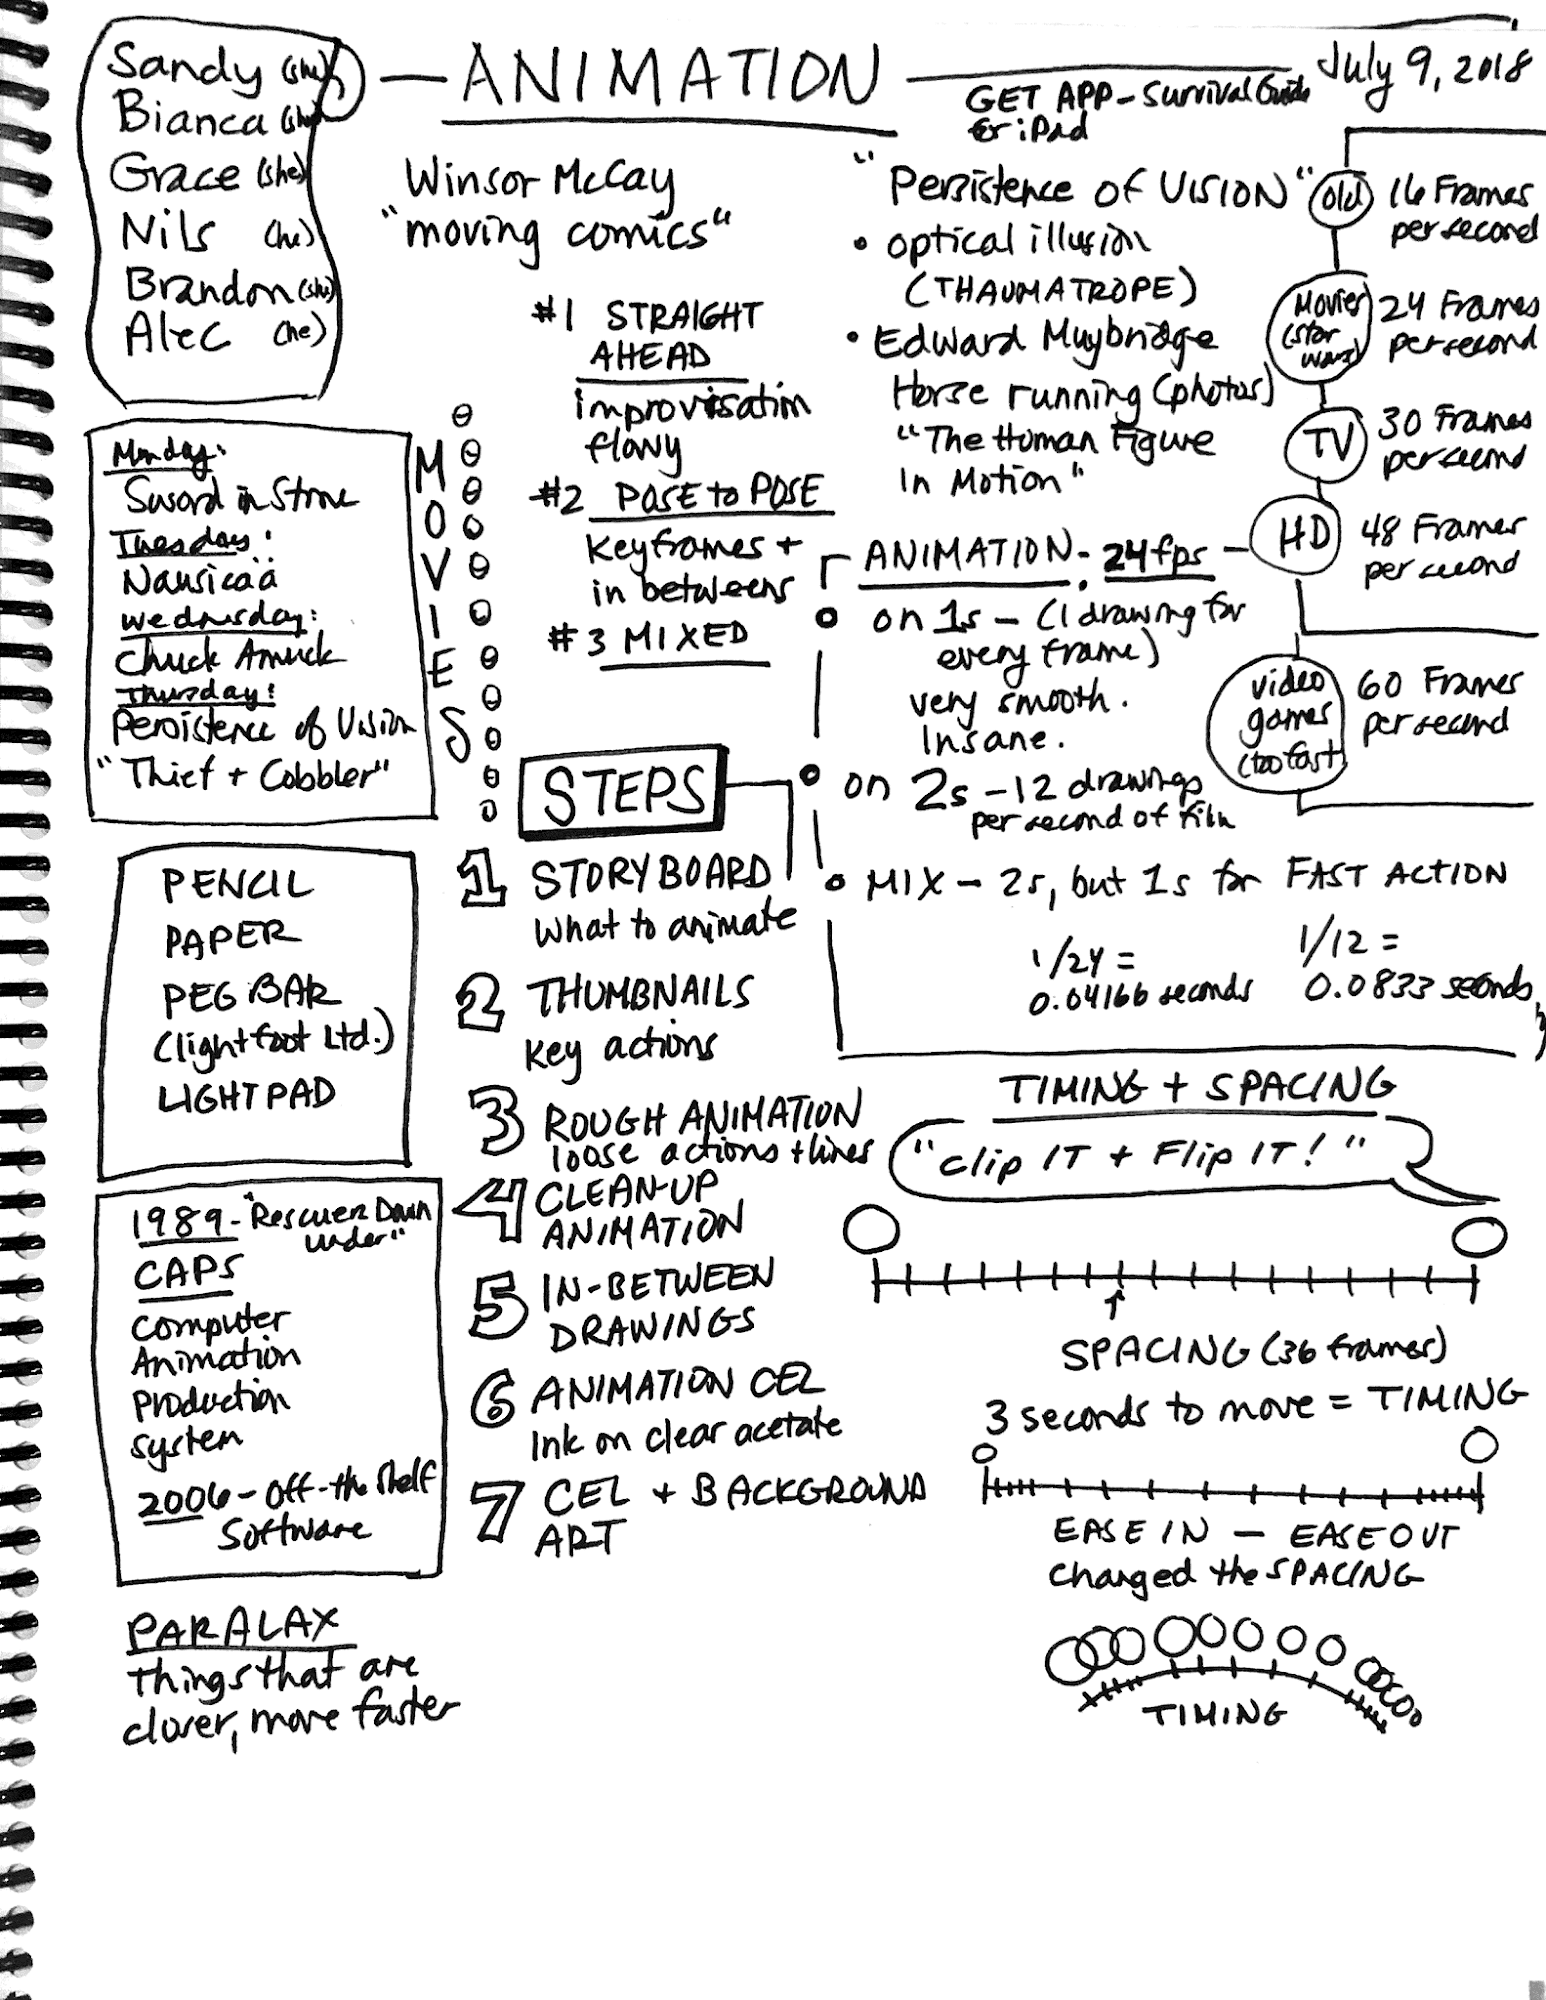 ANIMATION
July 9, 2018
GET APP - Survival Guide
for iPad
Sandy (she)
Bianca (she)
Grace (she)
Nils (he)
Brandon (she)
Alec (he)
Monday:
Sword in Stone
Tuesday:
Nausicaä
Wednesday:
Chuck Amuck
Thursday:
Persistence of Vision
"Thief + Cobbler"
MOVIES
PENCIL
PAPER
PEG BAR
(Lightfoot Ltd.)
LIGHTPAD
1989 - "Rescuers Down
under"
CAPS
Computer
Animation
Production
System
2006 - Off-the Shelf
Software
PARALAX
Things that are
closer, move faster
Winsor McCay
"moving comics"
#1 STRAIGHT
AHEAD
improvisation
flowy
#2 POSE to POSE
Keyframes +
in betweens
#3 MIXED
STEPS
1 STORYBOARD
What to animate
2 THUMBNAILS
Key actions
3 ROUGH ANIMATION
loose actions + lines
4 CLEAN-UP
ANIMATION
5 IN-BETWEEN
DRAWINGS
6 ANIMATION CEL
Ink on clear acetate
7 CEL + BACKGROUND
ART
"Persistence of VISION"
• optical illusion
(THAUMATROPE)
• Edward Muybridge
Horse running (photos)
"The Human Figure
In Motion"
ANIMATION - 24fps
on 1s - (1 drawing for
every frame)
very smooth.
Insane.
on 2s - 12 drawings
per second of film
MIX - 2s, but 1s for FAST ACTION
1/24 =
0.04166 seconds
1/12 =
0.0833 seconds
old
16 Frames
per second
Movies
(Star
Wars)
24 Frames
per second
TV
30 Frames
per second
HD
48 Frames
per second
video
games
(too fast)
60 Frames
per second
TIMING + SPACING
"Clip IT + Flip IT!"
SPACING (36 frames)
3 seconds to move = TIMING
EASE IN - EASE OUT
changed the SPACING
TIMING